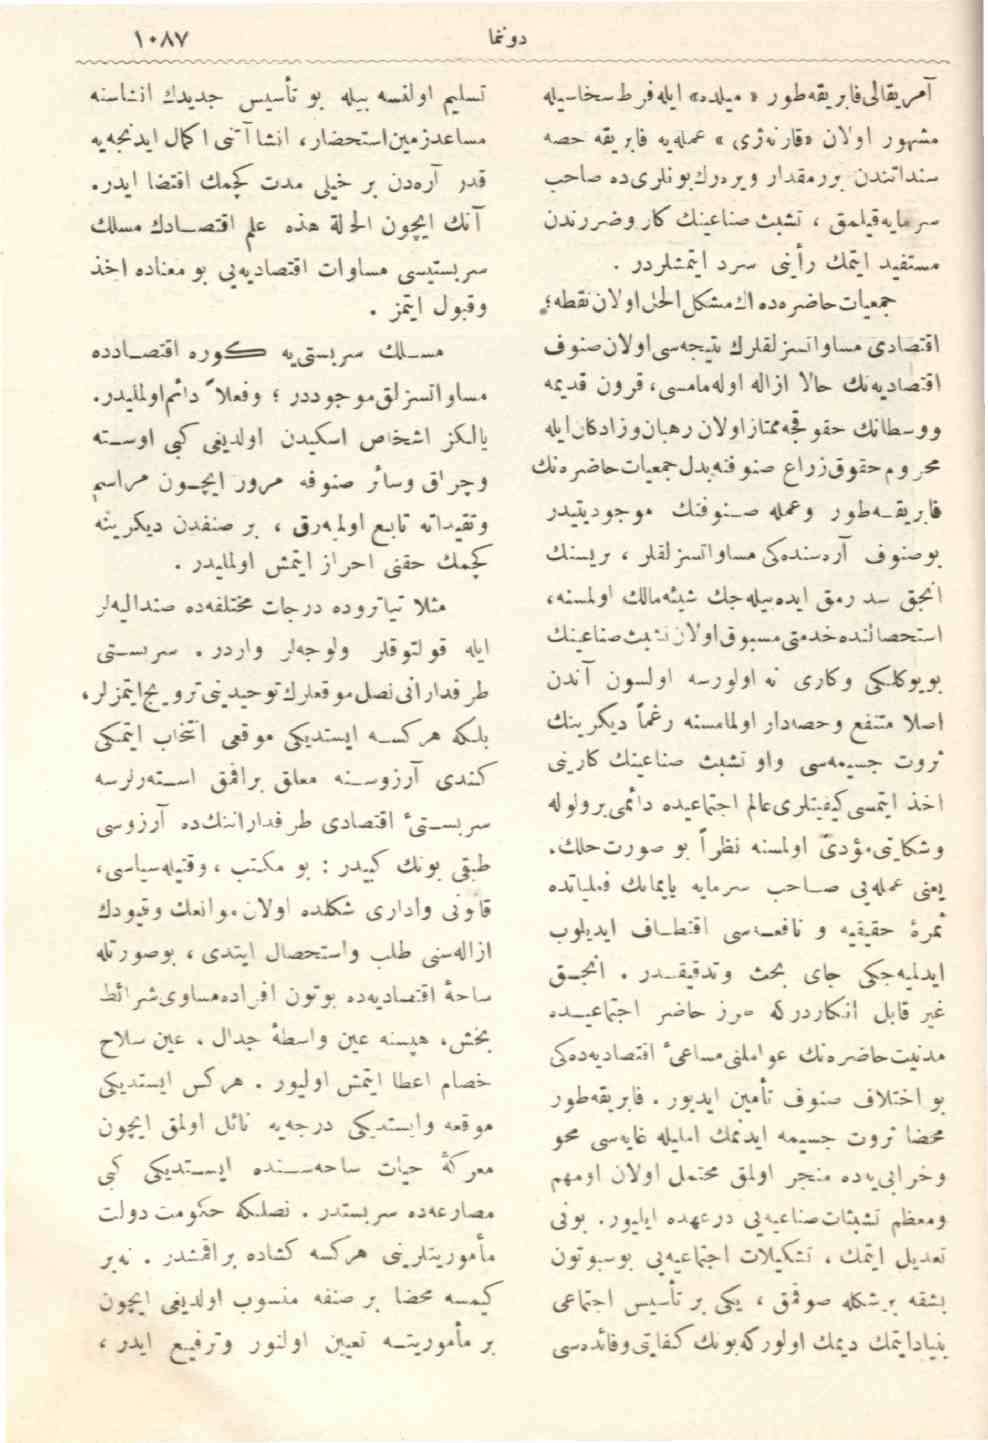 دوننما
١٠٨٧
آمریقالی فابریقه‌طور « میلده» ایله فرط سخاسیله
مشهور اولان «قارنه‌ژی » عمله‌یه فابریقه حصه
سنداتندن بررمقدار ویره‌رك بونلری‌ده صاحب
سرمایه قیلمق ، تشبث صناعینك کار وضررندن
مستفید ایتمك رأینی سرد ایتمشلردر .
جمعیات حاضره‌ده اك مشكل الحل اولان نقطه؛
اقتصادی مساواتسزلقلرك نتیجه‌سی اولان صنوف
اقتصادیه‌نك حالا ازاله اوله‌مامسی، قرون قدیمه
ووسطانك حقوقجه ممتاز اولان رهبان وزادكان ایله
محروم حقوق زراع صنوفنه بدل جمعیات حاضره‌نك
فابریقه‌طور وعمله صنوفنك موجودیتیدر
بوصنوف آره‌سنده‌كی مساواتسزلقلر ، بریسنك
انجق سد رمق ایده‌بیله‌جك شیئه مالك اولمسنه،
استحصالنده خدمتی مسبوق اولان تشبث صناعینك
بویوكلكی وكاری نه اولورسه اولسون آندن
اصلا متنفع وحصه‌دار اولمامسنه رغماً دیكرینك
ثروت جسیمه‌سی واو تشبث صناعینك كارینی
اخذ ایتمسی كیفیتلری عالم اجتماعیده دائمی برولوله
وشكایتی مؤدی اولمسنه نظراً بو صورت حلك،
یعنی عمله‌یی صاحب سرمایه یاپمانك فعلیاتده
ثمرۀ حقیقیه و نافعه‌سی اقتطاف ایدیلوب
ایدلمیه‌جكی جای بحث وتدقیقدر . انجق
غیر قابل انكاردركه طرز حاضر اجتماعیده
مدنیت حاضره‌نك عواملنی مساعیٔ اقتصادیه‌ده‌كی
بو اختلاف صنوف تأمین ایدیور . فابریقه‌طور
محضا ثروت جسیمه ایدنمك املیله غایه‌سی محو
وخرابی‌یه‌ده منجر اولمق محتمل اولان اومهم
ومعظم تشبثات صناعیه‌یی درعهده ایلیور. بونی
تعدیل ایتمك ، تشكیلات اجتماعیه‌یی بوسبوتون
بشقه برشكله صوقمق ، یكی بر تأسیس اجتماعی
بنیاد ایتمك دیمك اولوركه بونك كفایتی وفائده‌سی
تسلیم اولنسه بیله بو تأسیس جدیدك انشاسنه
مساعد زمین استحضار، انشاآتنی اكمال ایدنجه‌یه
قدر آره‌دن بر خیلی مدت كچمك اقتضا ایدر.
آنك ایچون الحالة هذه علم اقتصادك مسلك
سربستیسی مساوات اقتصادیه‌یی بو معناده اخذ
وقبول ایتمز .
مسلك سربستی‌یه كوره اقتصادده
مساواتسزلق موجوددر ؛ وفعلاً دائم اولملیدر.
یالكز اشخاص اسكیدن اولدیغی كبی اوسته
وچراق وسائر صنوفه مرور ایچون مراسم
وتقیداته تابع اولمه‌رق ، بر صنفدن دیكرینه
كچمك حقنی احراز ایتمش اولملیدر .
مثلا تیاتروده درجات مختلفه‌ده صندالیه‌لر
ایله قولتوقلر ولوجه‌لر واردر . سربستی
طرفدارانی نصل موقعلرك توحیدینی ترویج ایتمزلر،
بلكه هركسه ایستدیكی موقعی انتخاب ایتمكی
كندی آرزوسنه معلق براقمق استه‌رلرسه
سربستیٔ اقتصادی طرفدارانك‌ده آرزوسی
طبقی بونك كبیدر : بو مكتب ، وقتیله سیاسی،
قانونی واداری شكلده اولان موانعك وقیودك
ازاله‌سنی طلب واستحصال ایتدی ، بوصورتله
ساحۀ اقتصادیه‌ده بوتون افراده مساوی شرائط
بخش، هپسنه عین واسطۀ جدال ، عین سلاح
خصام اعطا ایتمش اولیور . هركس ایستدیكی
موقعه وایستدیكی درجه‌یه نائل اولمق ایچون
معركۀ حیات ساحه‌سنده ایستدیكی كبی
مصارعه‌ده سربستدر . نصلكه حكومت دولت
مأموریتلرینی هركسه كشاده براقمشدر . نه‌بر
كیمسه محضا بر صنفه منسوب اولدیغی ایچون
بر مأموریته تعیین اولنور وترفیع ایدر ،